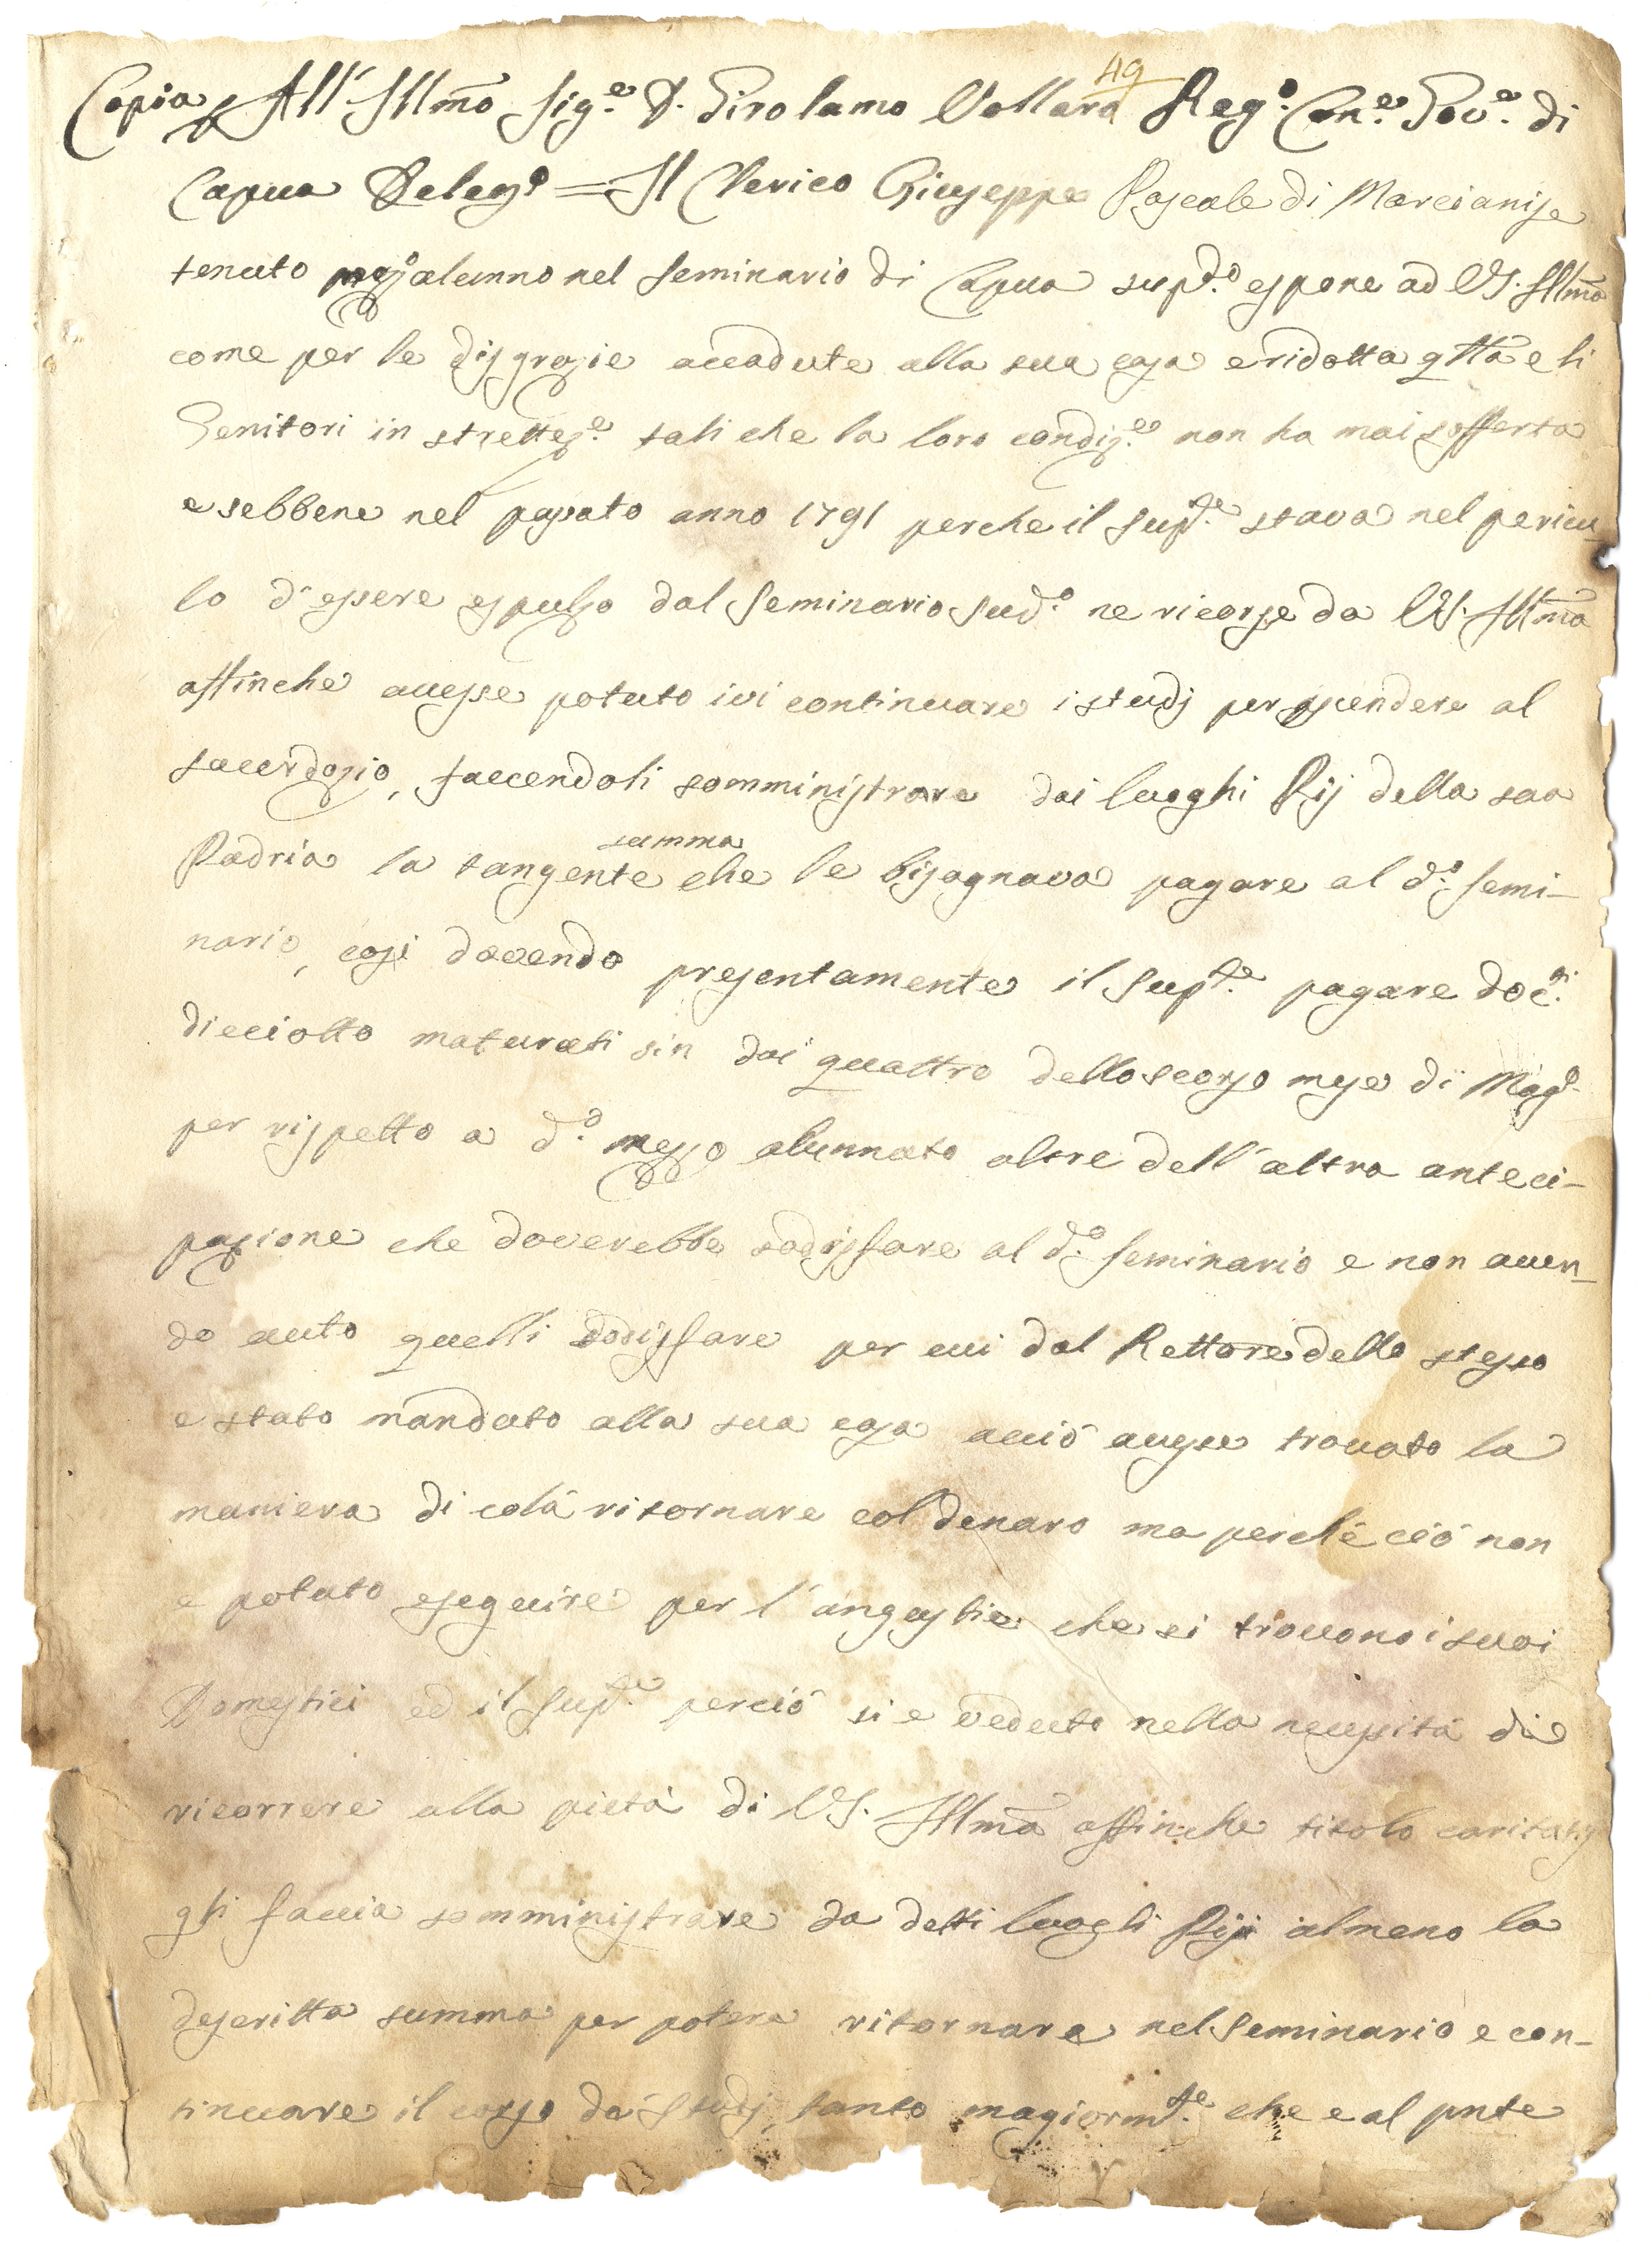 49
Copia All' Illmo Sig.e D. Girolamo Vollaro Reg.o Con.e Gov.e di
Capua Deleg.o = Il Clerico Giuseppe Pascale di Marcianise
tenuto mezzo alunno nel Seminario di Capua sup.do espone ad V.S. Illma
come per le disgrazie accadute alla sua casa e ridotta qsta e li
Genitori in strettez.e tali che la loro condiz.e non ha mai sofferta
e sebbene nel passato anno 1791 perche il Sup.te stava nel pericu-
lo d'essere espulso dal Seminario Sud.o ne ricorse da V.S. Illma
affinche avesse potuto ivi continuare i studj per ascendere al
sacerdozio, faccendoli somministrare dai luoghi Pij della sua
Padria la tangente summa che le bisognava pagare al d.o semi-
nario, cosi dovendo presentamente il Sup.te pagare doc.ti
dieciotto maturati sin dai quattro dello scorso mese di Mag.o
per rispetto a d.o mezzo alunnato oltre dell'altra anteci-
pazione che doverebbe sodisfare al d.o Seminario e non aven-
do auto quelli sodisfare per cui dal Rettore dello stesso
e stato mandato alla sua casa acciò avesse trovato la
maniera di colà ritornare col denaro ma perchè ciò non
e potuto eseguire per l'angustie che si trovono i suoi
Domestici ed il Sup.te perciò si e veduto nella necessità di
ricorrere alla pietà di V.S. Illma affinche titolo caritatis
gli faccia somministrare da detti luoghi Pij almeno la
descritta summa per potere ritornare nel Seminario e con-
tinuare il corso dà Studj, tanto magiorm.te che e al pnte